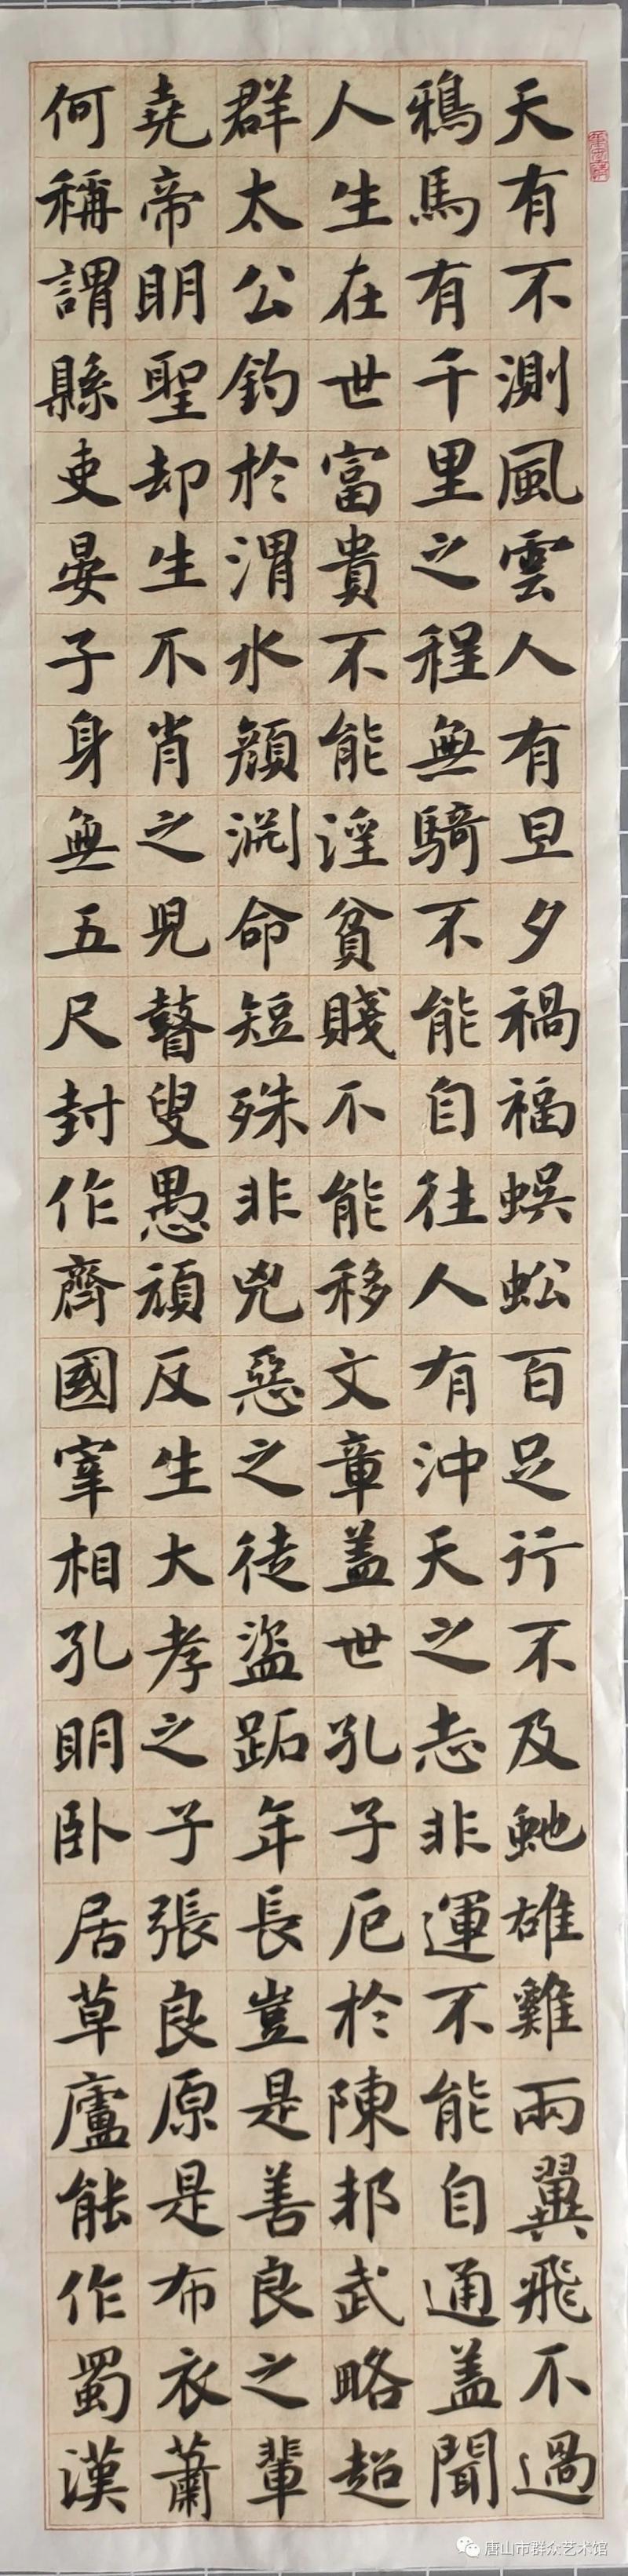 天有不測風雲人有旦夕禍福蜈蚣百足行不及虵雄雞兩翼飛不過
鴉馬有千里之程無騎不能自往人有沖天之志非運不能自通盖聞
人生在世富貴不能淫貧賤不能移文章盖世孔子厄於陳邦武略超
群太公釣於渭水顏淵命短殊非兇惡之徒盜跖年長豈是善良之輩
堯帝明聖却生不肖之児瞽叟愚頑反生大孝之子張良原是布衣蕭
何稱謂縣吏晏子身無五尺封作齊國宰相孔明卧居草廬能作蜀漢
唐山市群众艺术馆